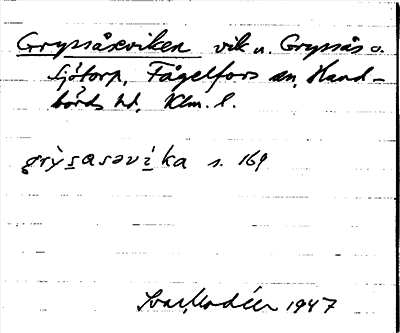 Gryssåseviken vik u. Gryssås o.
Sjötorp, Fågelfors sn, Hand-
börds hd, Klm. l.
grỳsasəvìka s. 169
Ivar Modéer 1947